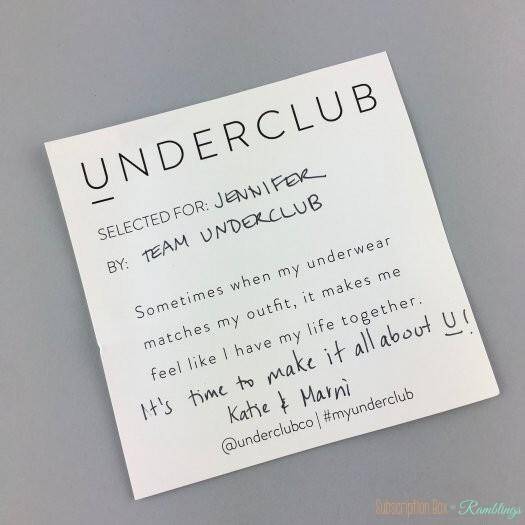 UNDERCLUB
SELECTED FOR: JENNIFER
BY: TEAM UNDERCLUB
Sometimes when my underwear
matches my outfit, it makes me
feel like I have my life together.
It's time to make it all about U!
Katie & Marni
@underclubco | #myunderclub
Subscription Box Ramblings